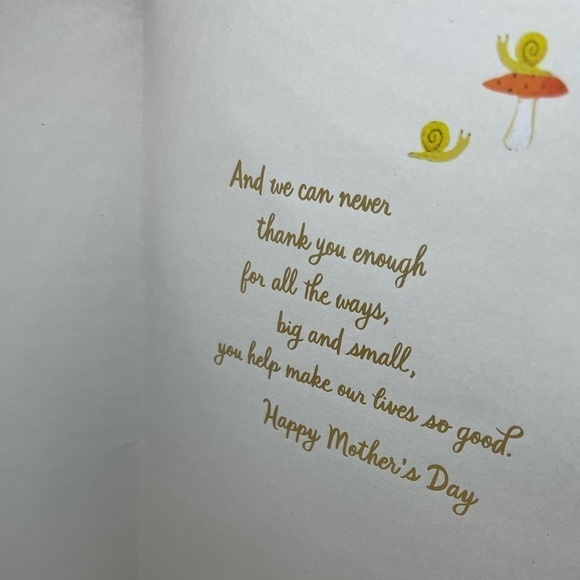 And we can never
thank you enough
for all the ways,
big and small,
you help make our lives so good.
Happy Mother's Day